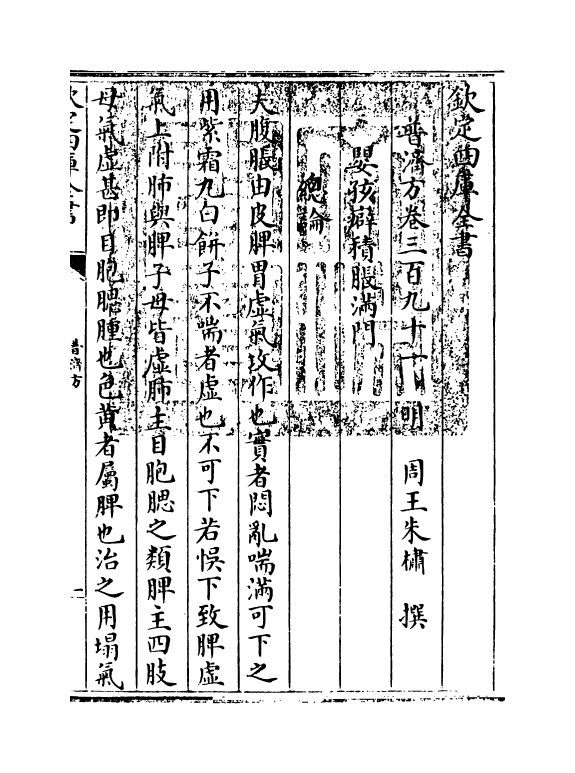 欽定四庫全書
普濟方卷三百九十一 明 周王朱橚 撰
嬰孩癖積脹滿門
總論
夫腹脹由皮脾胃虛氣攻作也實者悶亂喘滿可下之
用紫霜丸白餅子不喘者虛也不可下若悞下致脾虛
氣上附肺與脾子母皆虛肺主目胞腮之類脾主四肢
母氣虛甚即目胞腮腫也色黃者屬脾也治之用塌氣
欽定四庫全書
普濟方